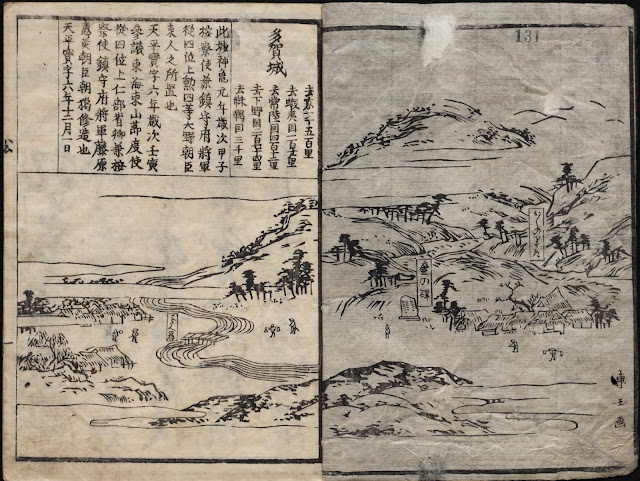 131
壷の碑
多賀城
去京一千五百里
去蝦夷国一百廿里
去常陸国四百十二里
去下野国二百七十四里
去靺鞨国三千里
此城神亀元年歳次甲子
按察使兼鎮守府将軍
従四位上勲四等大野朝臣
東人之所置也
天平寳字六年歳次壬寅
参議東海東山節度使
従四位上仁部省卿兼按
察使鎮守府将軍藤原
恵美朝臣朝獦修造也
天平寳字六年十二月一日